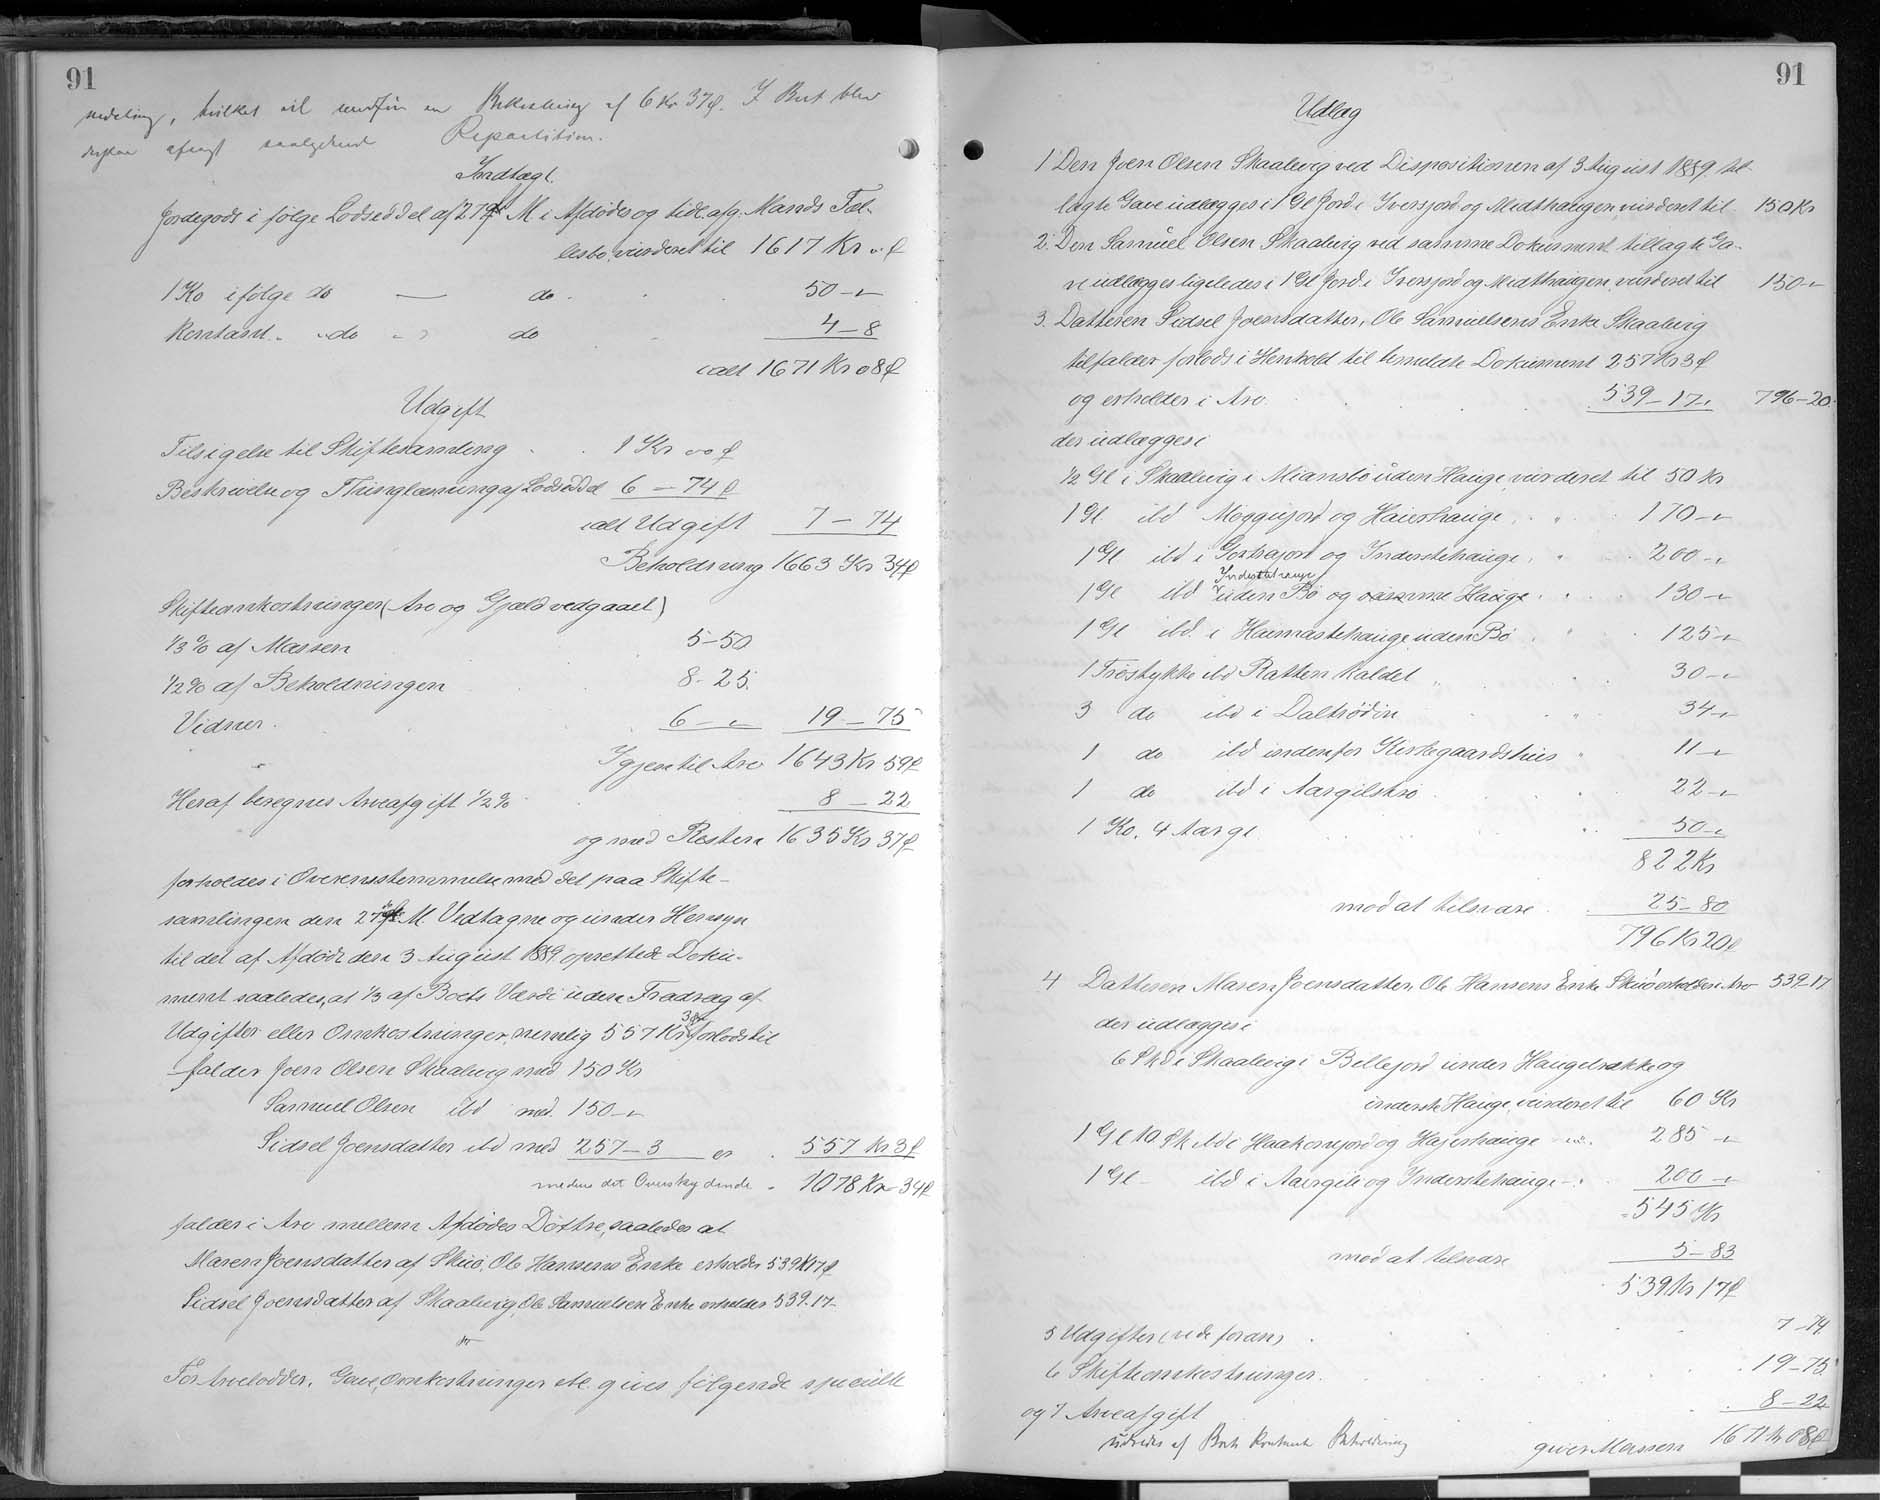 91
nedeling, hvilket vil udgjøre en Bekostning af 6 Kr 37 Ø. I Boet blev
derpaa aflagt saalydende Repartition.
Indtægt.
Jordegods i følge Lodseddel af 27 f. M. i Afdødes og tidl. afg. Mands Fæl-
lesbo, vurderet til 1617 Kr „ Ø
1 Ko ifølge do — do 50 - „
Kontant „ do „ do 4 - 8
ialt 1671 Kr 08 Ø
Udgift
Tilsigelse til Skiftesamling 1 Kr 00 Ø
Beskrivelse og Thinglæsning af Lodseddel 6 - 74 Ø
ialt Udgift 7 - 74
Beholdning 1663 Kr 34 Ø
Skifteomkostninger (Arv og Gjæld vedgaaet)
1/3 % af Massen 5 - 50
1/2 % af Beholdningen 8 - 25.
Vidner 6 - „ 19 - 75
Igjen til Arv 1643 Kr 59 Ø
Heraf beregnes Arveafgift 1/2 % 8 - 22
og med Resten 1635 Kr 37 Ø
forholdes i Overensstemmelse med det paa Skifte-
samlingen den 27 f. M. Vedtagne og under Hensyn
til det af Afdøde den 3 August 1889 oprettede Doku-
ment saaledes, at 1/3 af Boets Værdi uden Fradrag af
Udgifter eller Omkostninger, nemlig 557 Kr 3 Ø forlods til
falder Joen Olsen Skaalevig med 150 Kr
Samuel Olsen ibd med 150 - „
Sidsel Joensdatter ibd med 257 - 3 er 557 Kr 3 Ø
medens det Overskydende 1078 Kr 34 Ø
falder i Arv mellem Afdødes Døttre, saaledes at
Maren Joensdatter af Skuø, Ole Hansens Enke erholder 539 Kr 17 Ø
Sidsel Joensdatter af Skaalevig, Ole Samuelsens Enke erholder 539 - 17 -
For Arvelodder, Gave, Omkostninger etc. gives følgende specielle
91
Udlæg
1 Den Joen Olsen Skaalevig ved Dispositionen af 3 August 1889 til-
lagte Gave udlægges i 1 Gl Jord i Iversjord og Midthaugen, vurderet til 150 Kr
2. Den Samuel Olsen Skaalevig ved samme Dokument tillagte Ga-
ve udlægges ligeledes i 1 Gl Jord i Iversjord og Midthaugen, vurderet til 150 - „
3. Datteren Sidsel Joensdatter, Ole Samuelsens Enke Skaalevig
tilfalder forlods i Henhold til bemeldte Dokument 257 Kr 3 Ø
og erholder i Arv 539 - 17 - 796 - 20
der udlægges i
1/2 Gl i Skaalevig i Miansbø uden Hauge vurderet til 50 Kr
1 Gl ibd Moggujord og Haiershauge „ 170 - „
1 Gl ibd i Gortrajord og Inderstehauge „ 200 - „
1 Gl ibd Inderstehauge uden Bø og samme Hauge „ 130 - „
1 Gl ibd i Haimastehauge uden Bø „ 125 - „
1 Trøstykke ibd Ratten kaldet „ 30 - „
3 do ibd i Daltrøðin „ 34 - „
1 do ibd indenfor Kirkegaardshus „ 11 - „
1 do ibd i Aargilstrø „ 22 - „
1 Ko, 4 Aar gl. „ 50 - „
822 Kr
mod at tilsvare 25 - 80
796 Kr 20 Ø
4 Datteren Maren Joensdatter, Ole Hansens Enke Skuø erholder i Arv 539 - 17
der udlægges i
6 Skd i Skaalevig i Billejord under Haugebrække og
inderste Hauge, vurderet til 60 Kr
1 Gl 10 Sk ibd i Haakonsjord og Hajershauge „ 285 - „
1 Gl - ibd i Aargile og Inderstehauge - „ 200 - „
545 Kr
mod at tilsvare 5 - 83
539 Kr 17 Ø
5 Udgifter (vide foran) 7 - 74
6 Skifteomkostninger 19 - 75
og 7 Arveafgift 8 - 22
udredes af Boets kontante Beholdning
giver Massen 1671 Kr 08 Ø